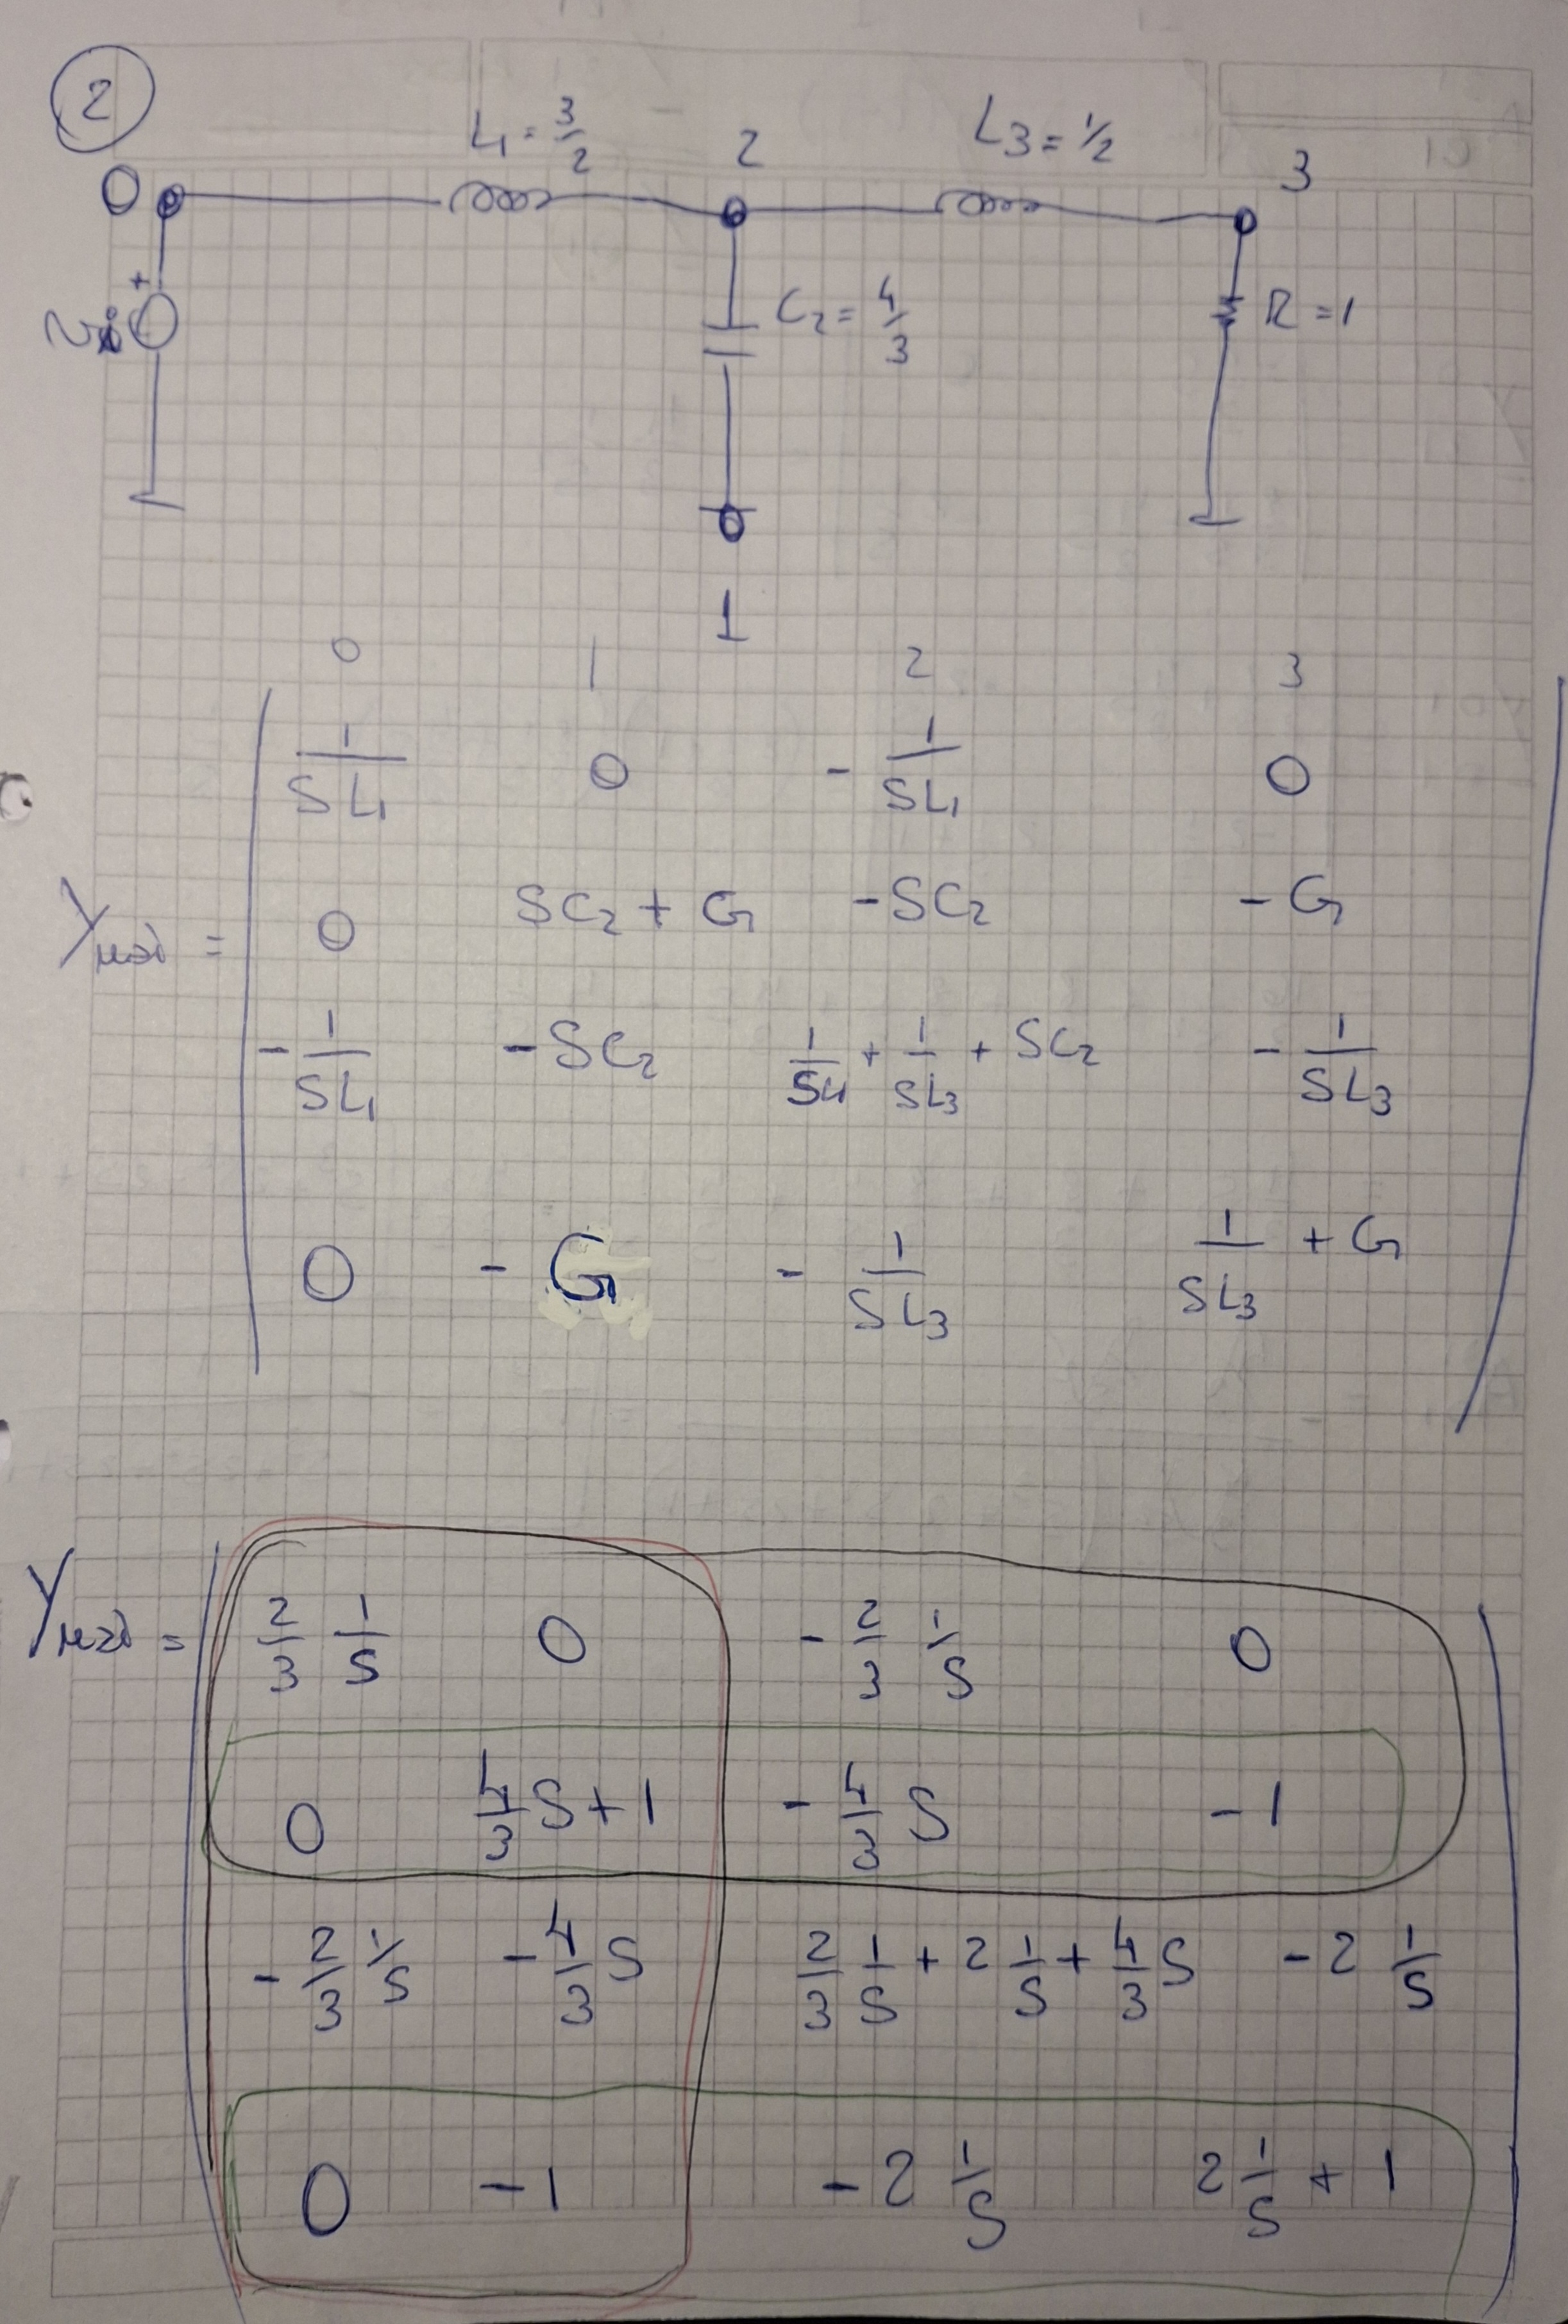 2
L1 = 3/2 2 L3 = 1/2 3
0
+
C2 = 4/3 R = 1
1
0 1 2 3
1/SL1 0 - 1/SL1 0
0 SC2 + G -SC2 - G
- 1/SL1 - SC2 1/SL1 + 1/SL3 + SC2 - 1/SL3
0 - G - 1/SL3 1/SL3 + G
2/3 1/S 0 - 2/3 1/S 0
0 4/3 S + 1 - 4/3 S -1
- 2/3 1/S - 4/3 S 2/3 1/S + 2 1/S + 4/3 S - 2 1/S
0 -1 - 2 1/S 2 1/S + 1